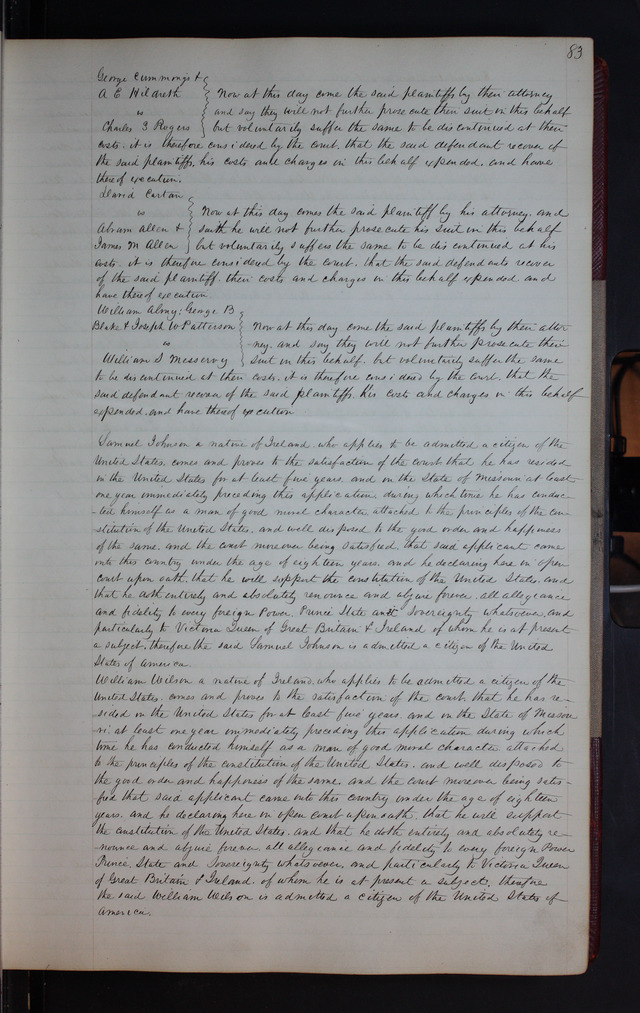 83
George Cummongs &
A E Hildreth } Now at this day come the said plaintiffs by their attorney
vs and say they will not further prosecute their suit in this behalf
Charles S Rogers but voluntarily suffer the same to be discontinued at their
costs. it is therefore considered by the court. that the said defendant recover of
the said plaintiffs, his costs and charges in this behalf expended. and have
thereof execution.
David Carton
vs } Now at this day comes the said plaintiff by his attorney. and
Abram Allen & saith he will not further prosecute his suit in this behalf
James M Allen but voluntarily suffers the same to be discontinued at his
costs. it is therefore considered by the court. that the said defendants recover
of the said plaintiff. their costs and charges in this behalf expended and
have thereof execution
William Almy; George B
Blake & Joseph W Patterson } Now at this day come the said plaintiffs by their attor
vs ney. and say they will not further prosecute their
William S Messervy suit in this behalf. but voluntarily suffer the same
to be discontinued at their costs. it is therefore considered by the court. that the
said defendant recover of the said plaintiffs. his costs and charges in this behalf
expended. and have thereof execution
Samuel Johnson a native of Ireland. who applies to be admitted a citizen of the
United States. comes and proves to the satisfaction of the court that he has resided
in the United States for at least five years. and in the State of Missouri at least
one year immediately preceding this application. during which time he has conduc-
-ted himself as a man of good moral character attached to the principles of the con-
stitution of the United States. and well disposed to the good order and happiness
of the same. and the court moreover being satisfied. that said applicant came
into this country under the age of eighteen years. and he declaring here in open
court upon oath. that he will support the constitution of the United States. and
that he doth entirely and absolutely renounce and abjure forever. all allegiance
and fidelity to every foreign Power Prince State and Sovereignty whatsoever. and
particularly to Victoria Queen of Great Britain & Ireland of whom he is at present
a subject. therefore the said Samuel Johnson is admitted a citizen of the United
States of America.
William Wilson a native of Ireland. who applies to be admitted a citizen of the
United States. comes and proves to the satisfaction of the court. that he has re-
sided in the United States for at least five years. and in the State of Missou
ri. at least one year immediately preceding this application during which
time he has conducted himself as a man of good moral character attached
to the principles of the constitution of the United States. and well disposed to
the good order and happiness of the same. and the court moreover being satis-
fied that said applicant came into this country under the age of eighteen
years. and he declaring here in open court upon oath. that he will support
the constitution of the United States. and that he doth entirely and absolutely re-
nounce and abjure forever all allegiance and fidelity to every foreign Power
Prince State and Sovereignty whatsoever. and particularly to Victoria Queen
of Great Britain & Ireland. of whom he is at present a subject. therefore
the said William Wilson is admitted a citizen of the United States of
America.